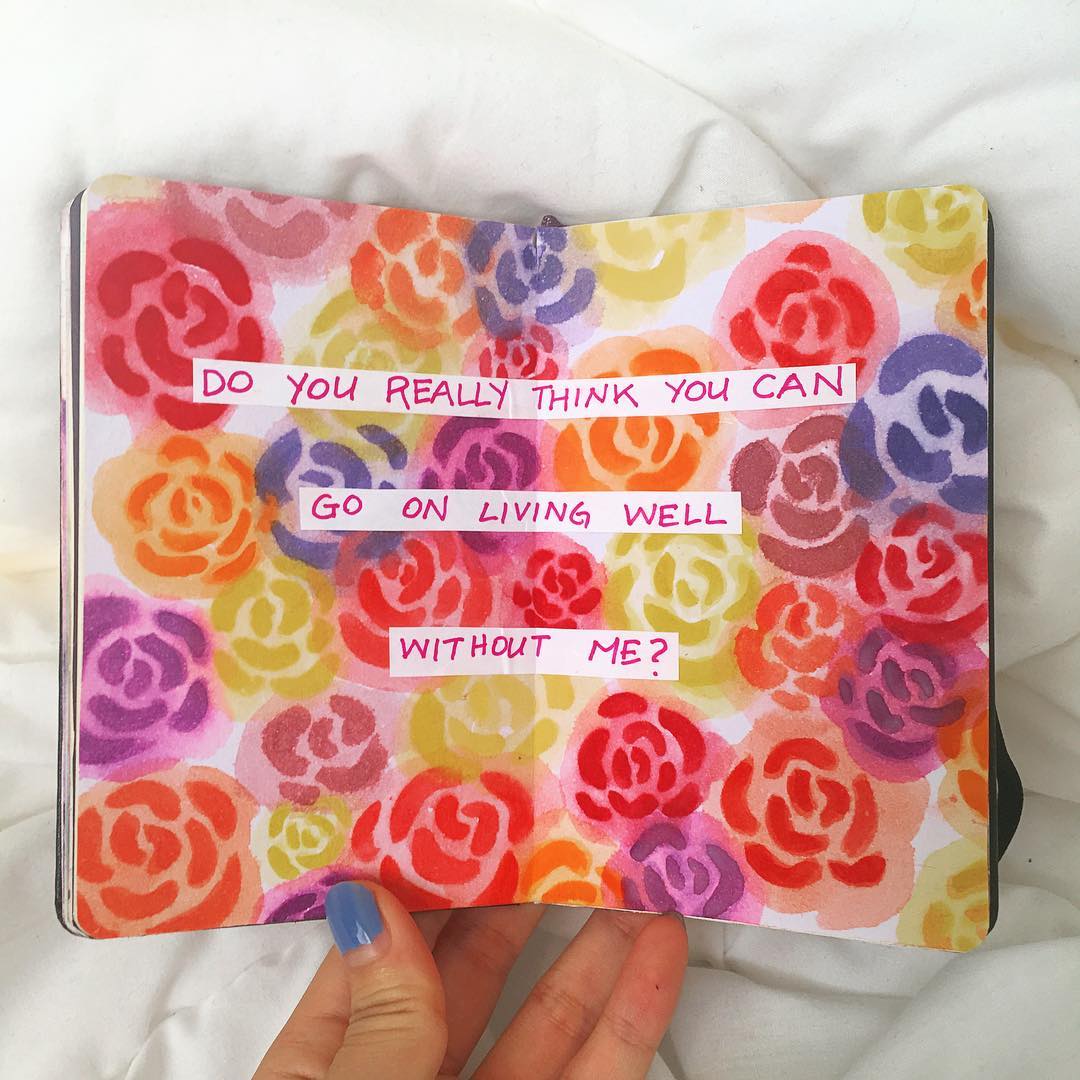 DO YOU REALLY THINK YOU CAN
GO ON LIVING WELL
WITHOUT ME?